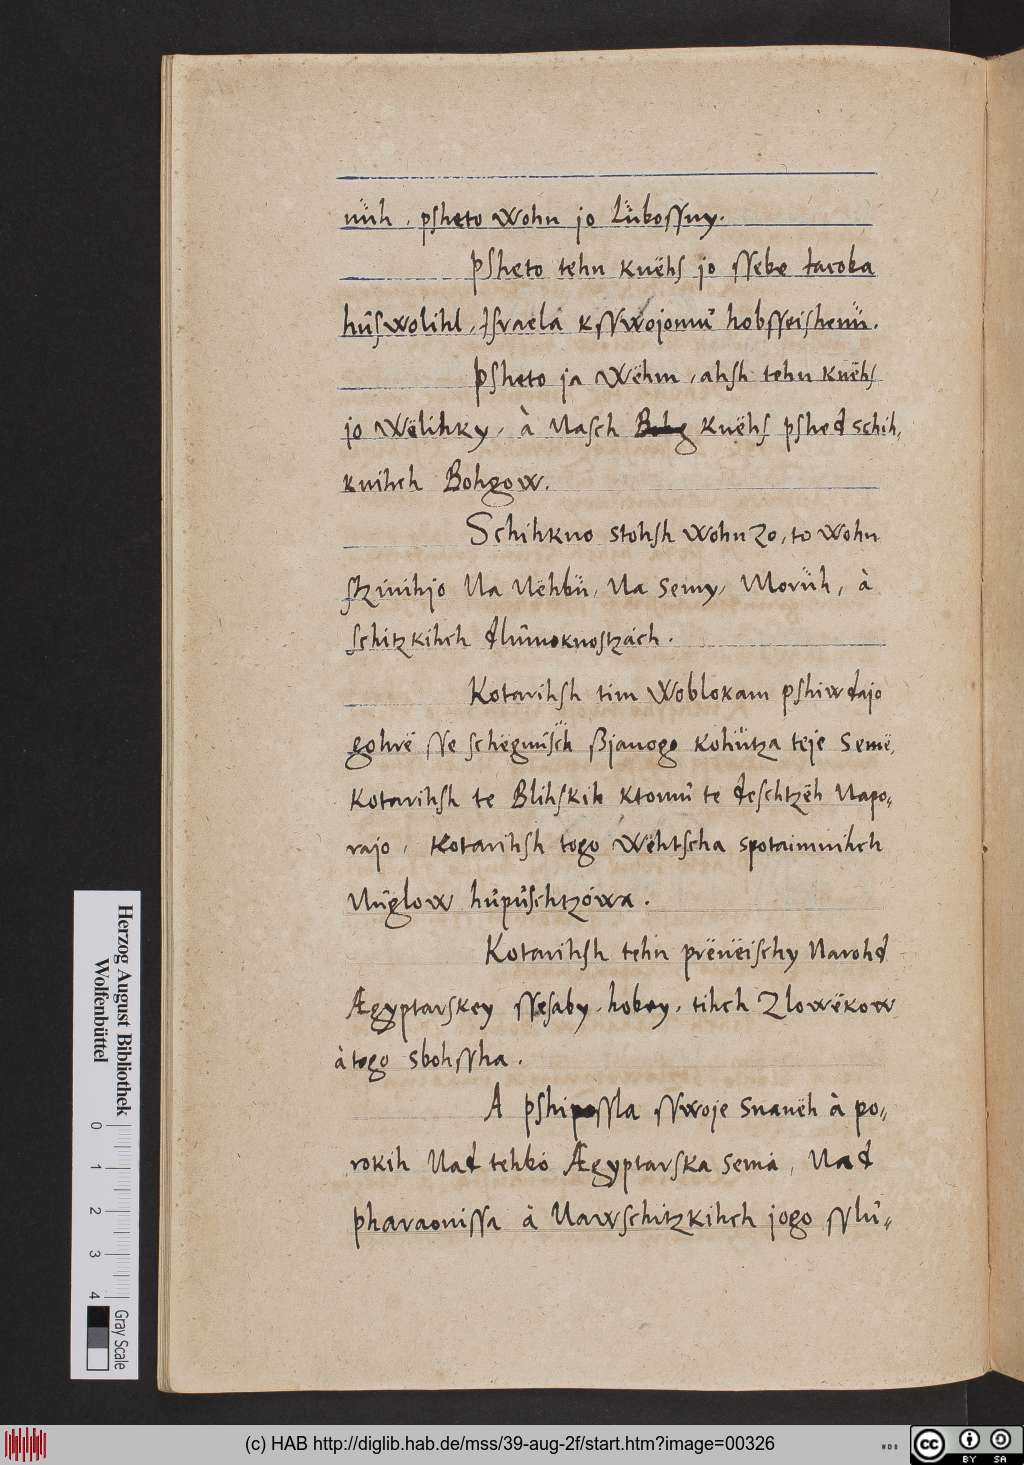 nüh, psheto wohn jo Lübossny.
Psheto tehn knëhs jo ssebe Jacoba
hûswolihl, Israela ksswojomû hobsseishenü.
Psheto ja wëhm, ahsh tehn knëhs
jo wëlihky, à Nasch Bohg knëhs pshedschih,
knihch Bohgow.
Schihkno stohsh wohn zo, to wohn
stzinihjo Na Nëhbü, Na semy, Morüh, à
schitzkihch dlûmoknostzách.
Kotarihsh tim woblokam pshiwdajo
gohrë sse schëgnüsch ßjanogo kohütza teje semë,
kotarihsh te Blihskih ktomû te deschtzëh Napo=
rajo, kotarihsh togo wëhtscha spotaimnihch
Nûglow hûpûschtzówa.
Kotarihsh tehn prënëischy Narohd
Ægyptarskey ssesaby, hobey, tihch zlowëkow
à togo sbohssha.
A pshipossla sswoje snanëh à po=
rokih Nad tehbó Ægyptarska semá, Nad
pharaonissa à Nawschitzkihch jogo sslû=
Herzog August Bibliothek
Wolfenbüttel
0 1 2 3 4
Gray Scale
(c) HAB http://diglib.hab.de/mss/39-aug-2f/start.htm?image=00326
WDB
cc BY SA